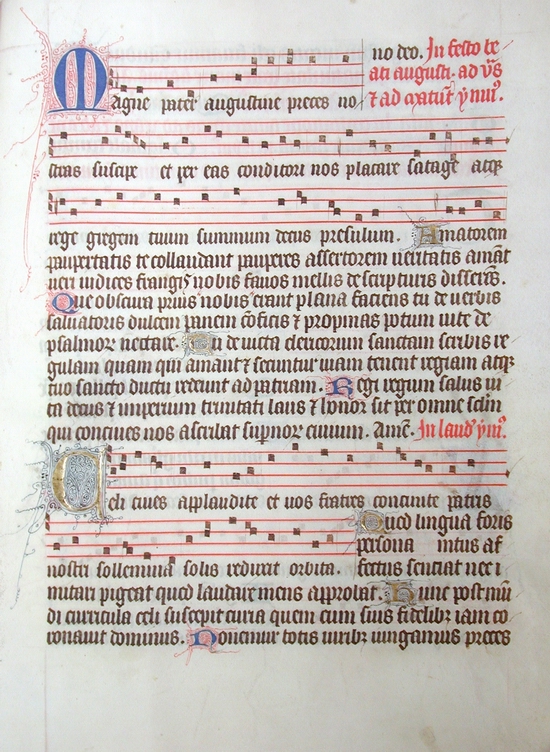 no deo. In festo be
ati augusti. ad v̄s
Magne pater augustine preces no ⁊ ad
stras suscipe et per eas conditori nos placare satage atqꝫ
rege gregem tuum summum decus presulum. Amatorem
paupertatis te collaudant pauperes assertorem ueritatis amāt
ueri iudices frangis nobis fauos mellis de scripturis disserēs.
Que obscura prius nobis erant plana faciens tu de uerbis
saluatoris dulcem panem cōficis ⁊ propinas potum uite de
psalmorꝫ nectare. Tu de uicta clericorum sanctam scribis re
gulam quam qui amant ⁊ secuntur uiam tenent regiam atqꝫ
tuo sancto ductu redeunt ad patriam. Regi regum salus ui
ta decus ⁊ imperium trinitati laus ⁊ honor sit per omne sclm̄
qui conciues nos ascribat supnorꝫ ciuium. Amē. In laud ymꝰ.
Celi ciues applaudite et uos fratres concinite patris
nostri sollemnia solis reduxit orbita.
Qued lingua foris
persona intus af
fectus sentiat nec i
mitari pigeat quod laudare mens approbat. Hunc post mū
di curricula celi suscepit curia quem cum suis fidelibꝫ iam co
ronauit dominus. Nonemur totis uiribꝫ iungamus preces